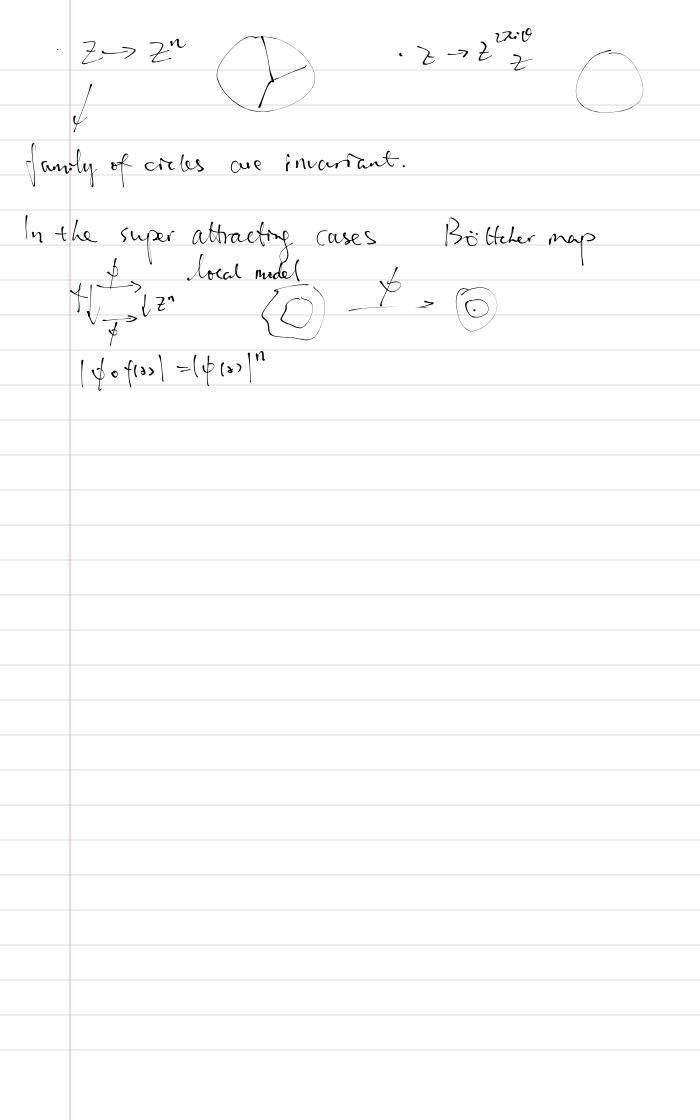 · z → zⁿ · z → z^{2πiθ} z
family of circles are invariant.
In the super attracting cases Böttcher map
local model
ϕ
f ↓ ↓ zⁿ ϕ
ϕ
|ϕ∘f(z)| = |ϕ(z)|ⁿ